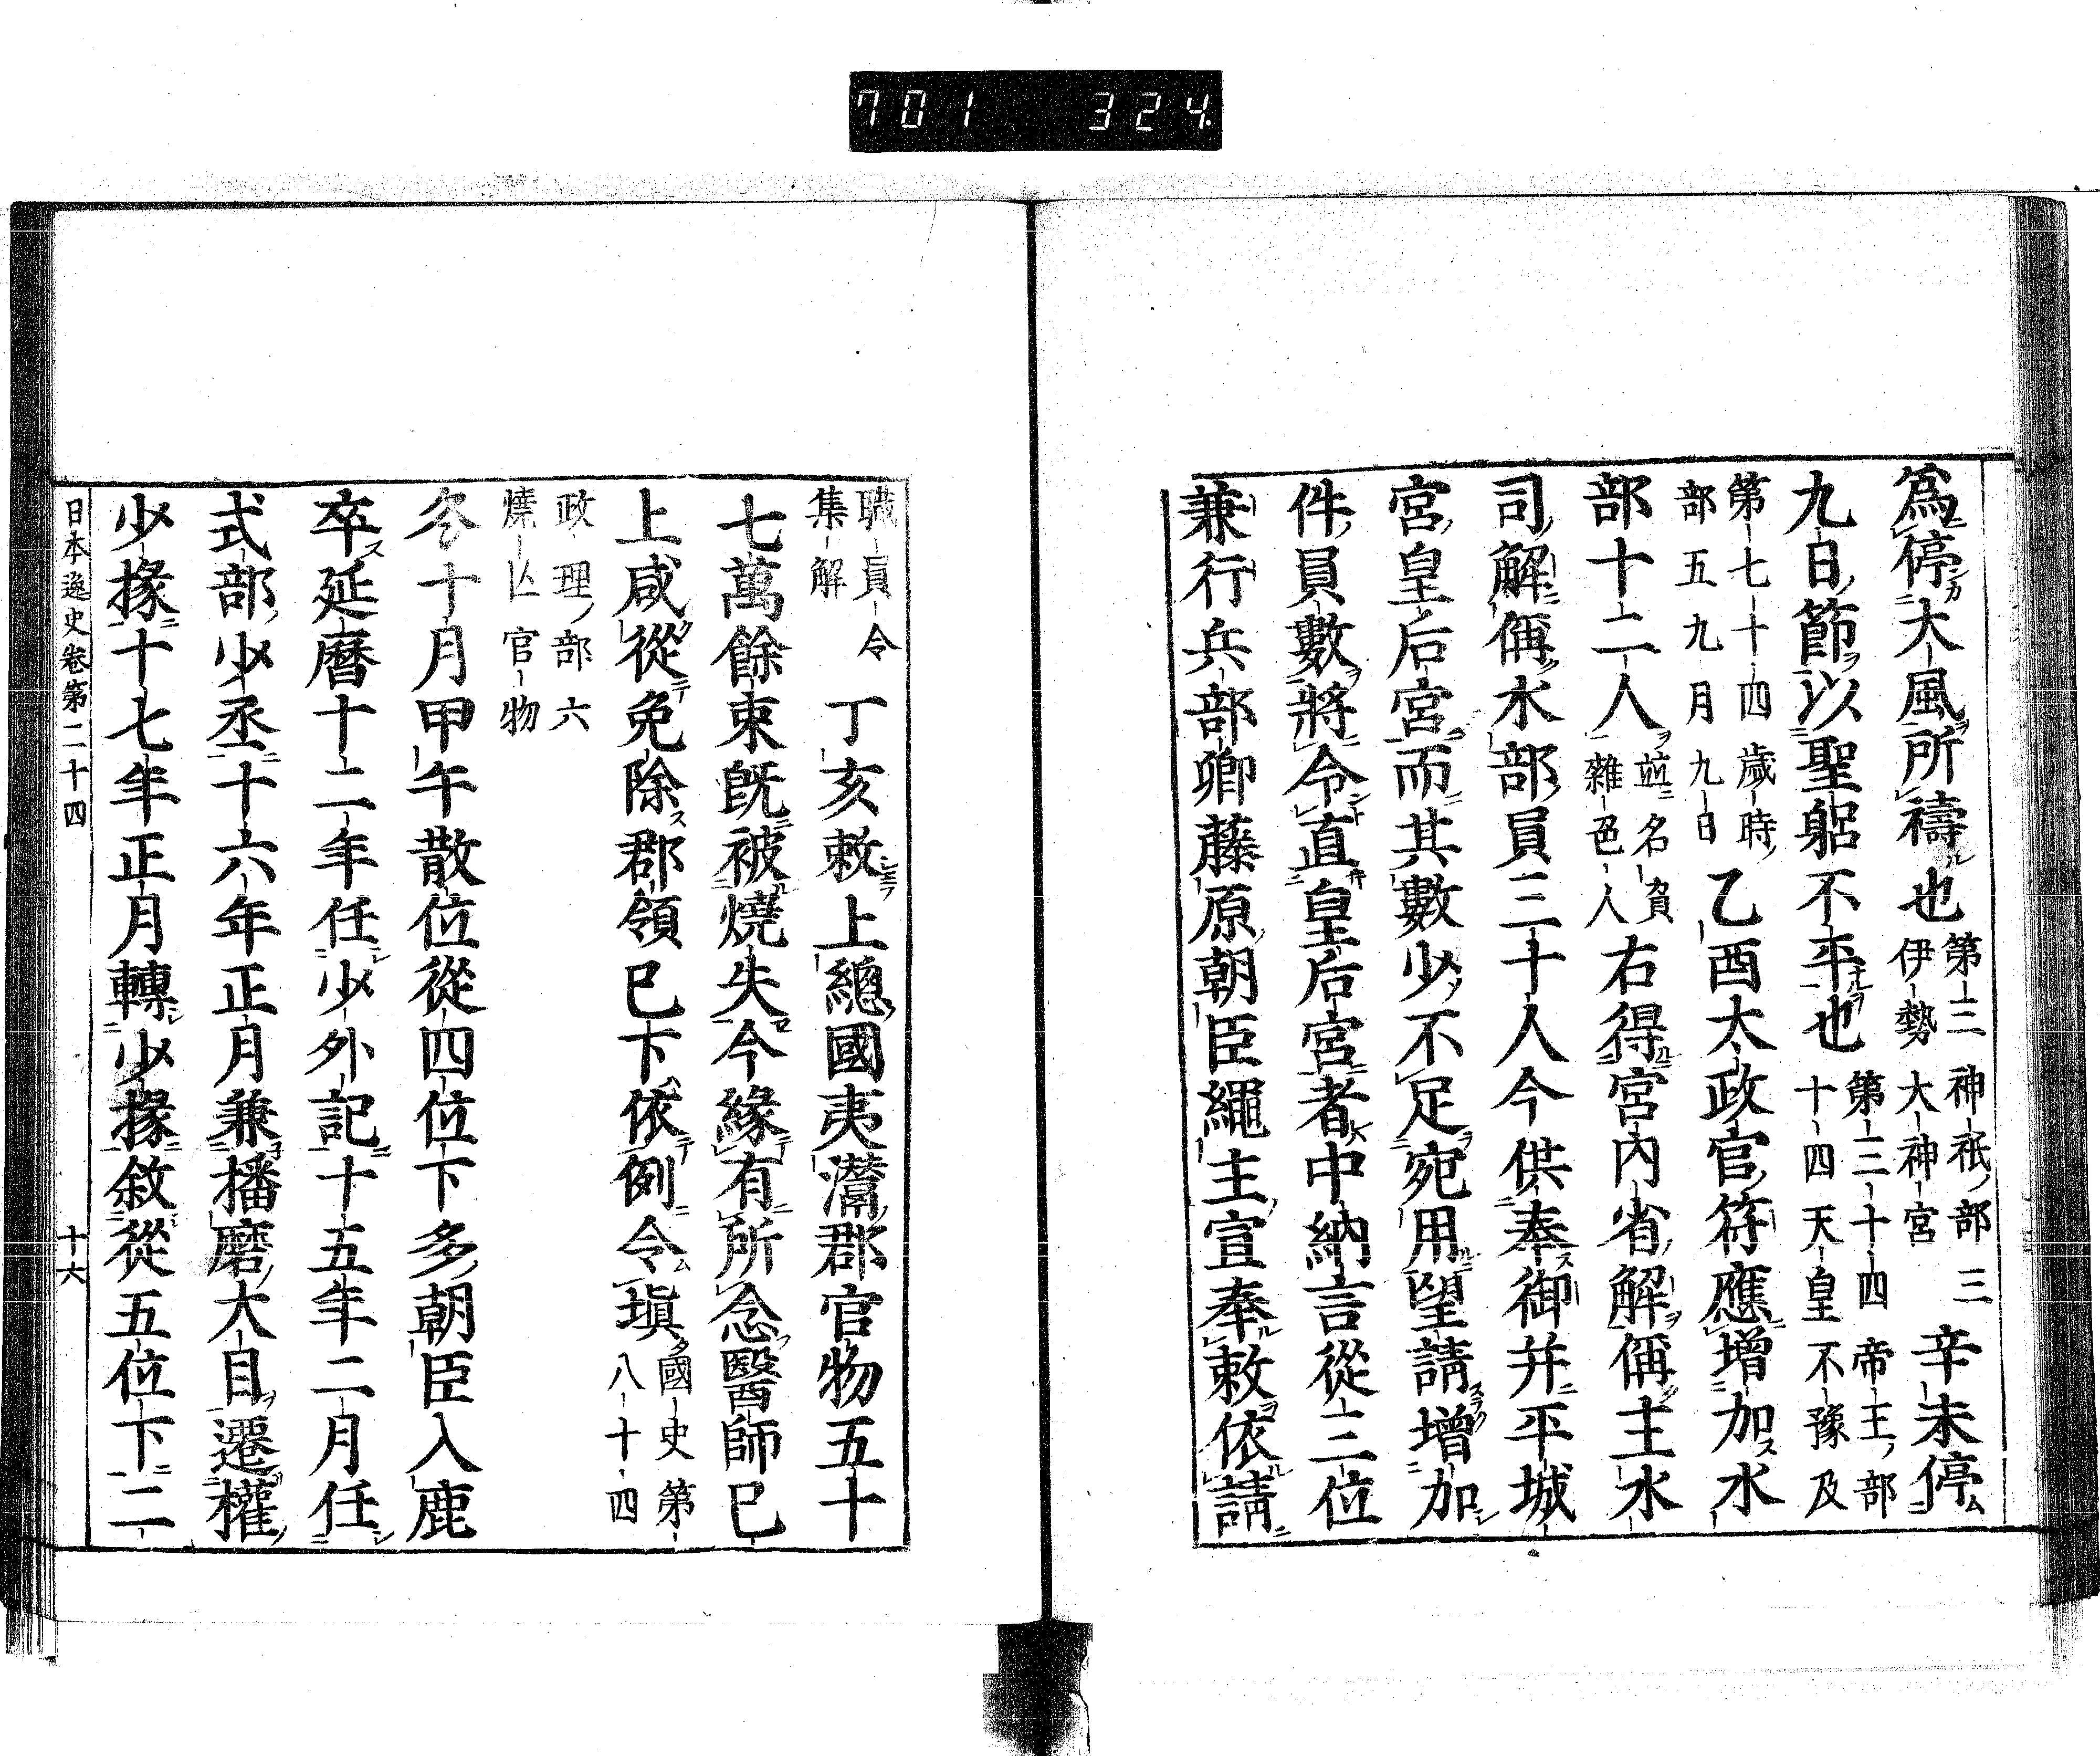 701 324.
為停大風所禱也第二神祇部三伊勢大神宮辛未停
九日節以聖躬不平也第三十四帝王部十四天皇不豫及
第七十四歲時部五九月九日乙酉太政官符應增加水
部十二人並名負雜色人右得宮內省解偁主水
司解偁水部員三十人今供奉御并平城
宮皇后宮而其數少不足宛用望請增加
件員數將令直皇后宮者中納言從三位
兼行兵部卿藤原朝臣繩主宣奉敕依請
職員令集解丁亥敕上總國夷灊郡官物五十
七萬餘束既被燒失今緣有所念醫師已
上咸從免除郡領已下依例令塡國史第八十四
政理部六燒亡官物
冬十月甲午散位從四位下多朝臣入鹿
卒延曆十二年任少外記十五年二月任
式部少丞十六年正月兼播磨大目遷權
少掾十七年正月轉少掾敘從五位下二
日本逸史卷第二十四 十六